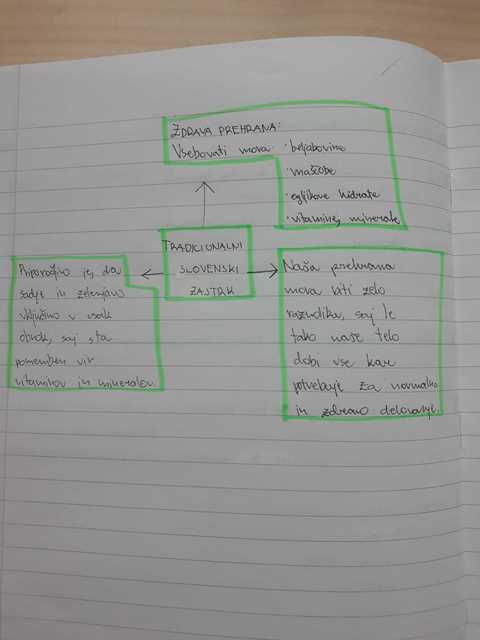 ZDRAVA PREHRANA:
Vsebovati mora · beljakovine
· maščobe
· ogljikove hidrate
· vitamine, minerale
TRADICIONALNI
SLOVENSKI
ZAJTRK
Priporočljivo je, da
sadje in zelenjavo
vključimo v vsak
obrok, saj sta
pomemben vir
vitaminov in mineralov.
Naša prehrana
mora biti zelo
raznolika, saj le
tako naše telo
dobi vse kar
potrebuje za normalno
in zdravo delovanje.